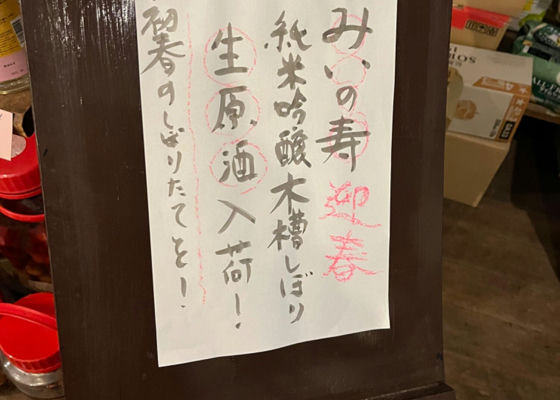 みいの寿 迎春
純米吟醸木槽しぼり
生原酒入荷!
初春のしぼりたてを!